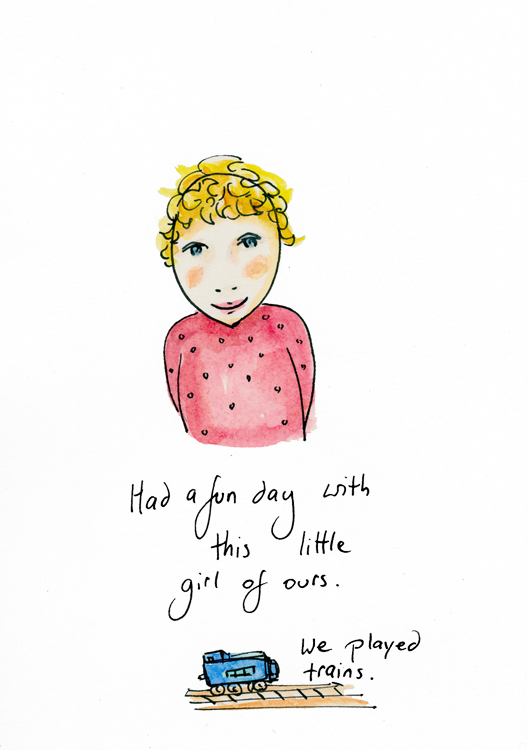 Had a fun day with
this little
girl of ours.
We played
trains.